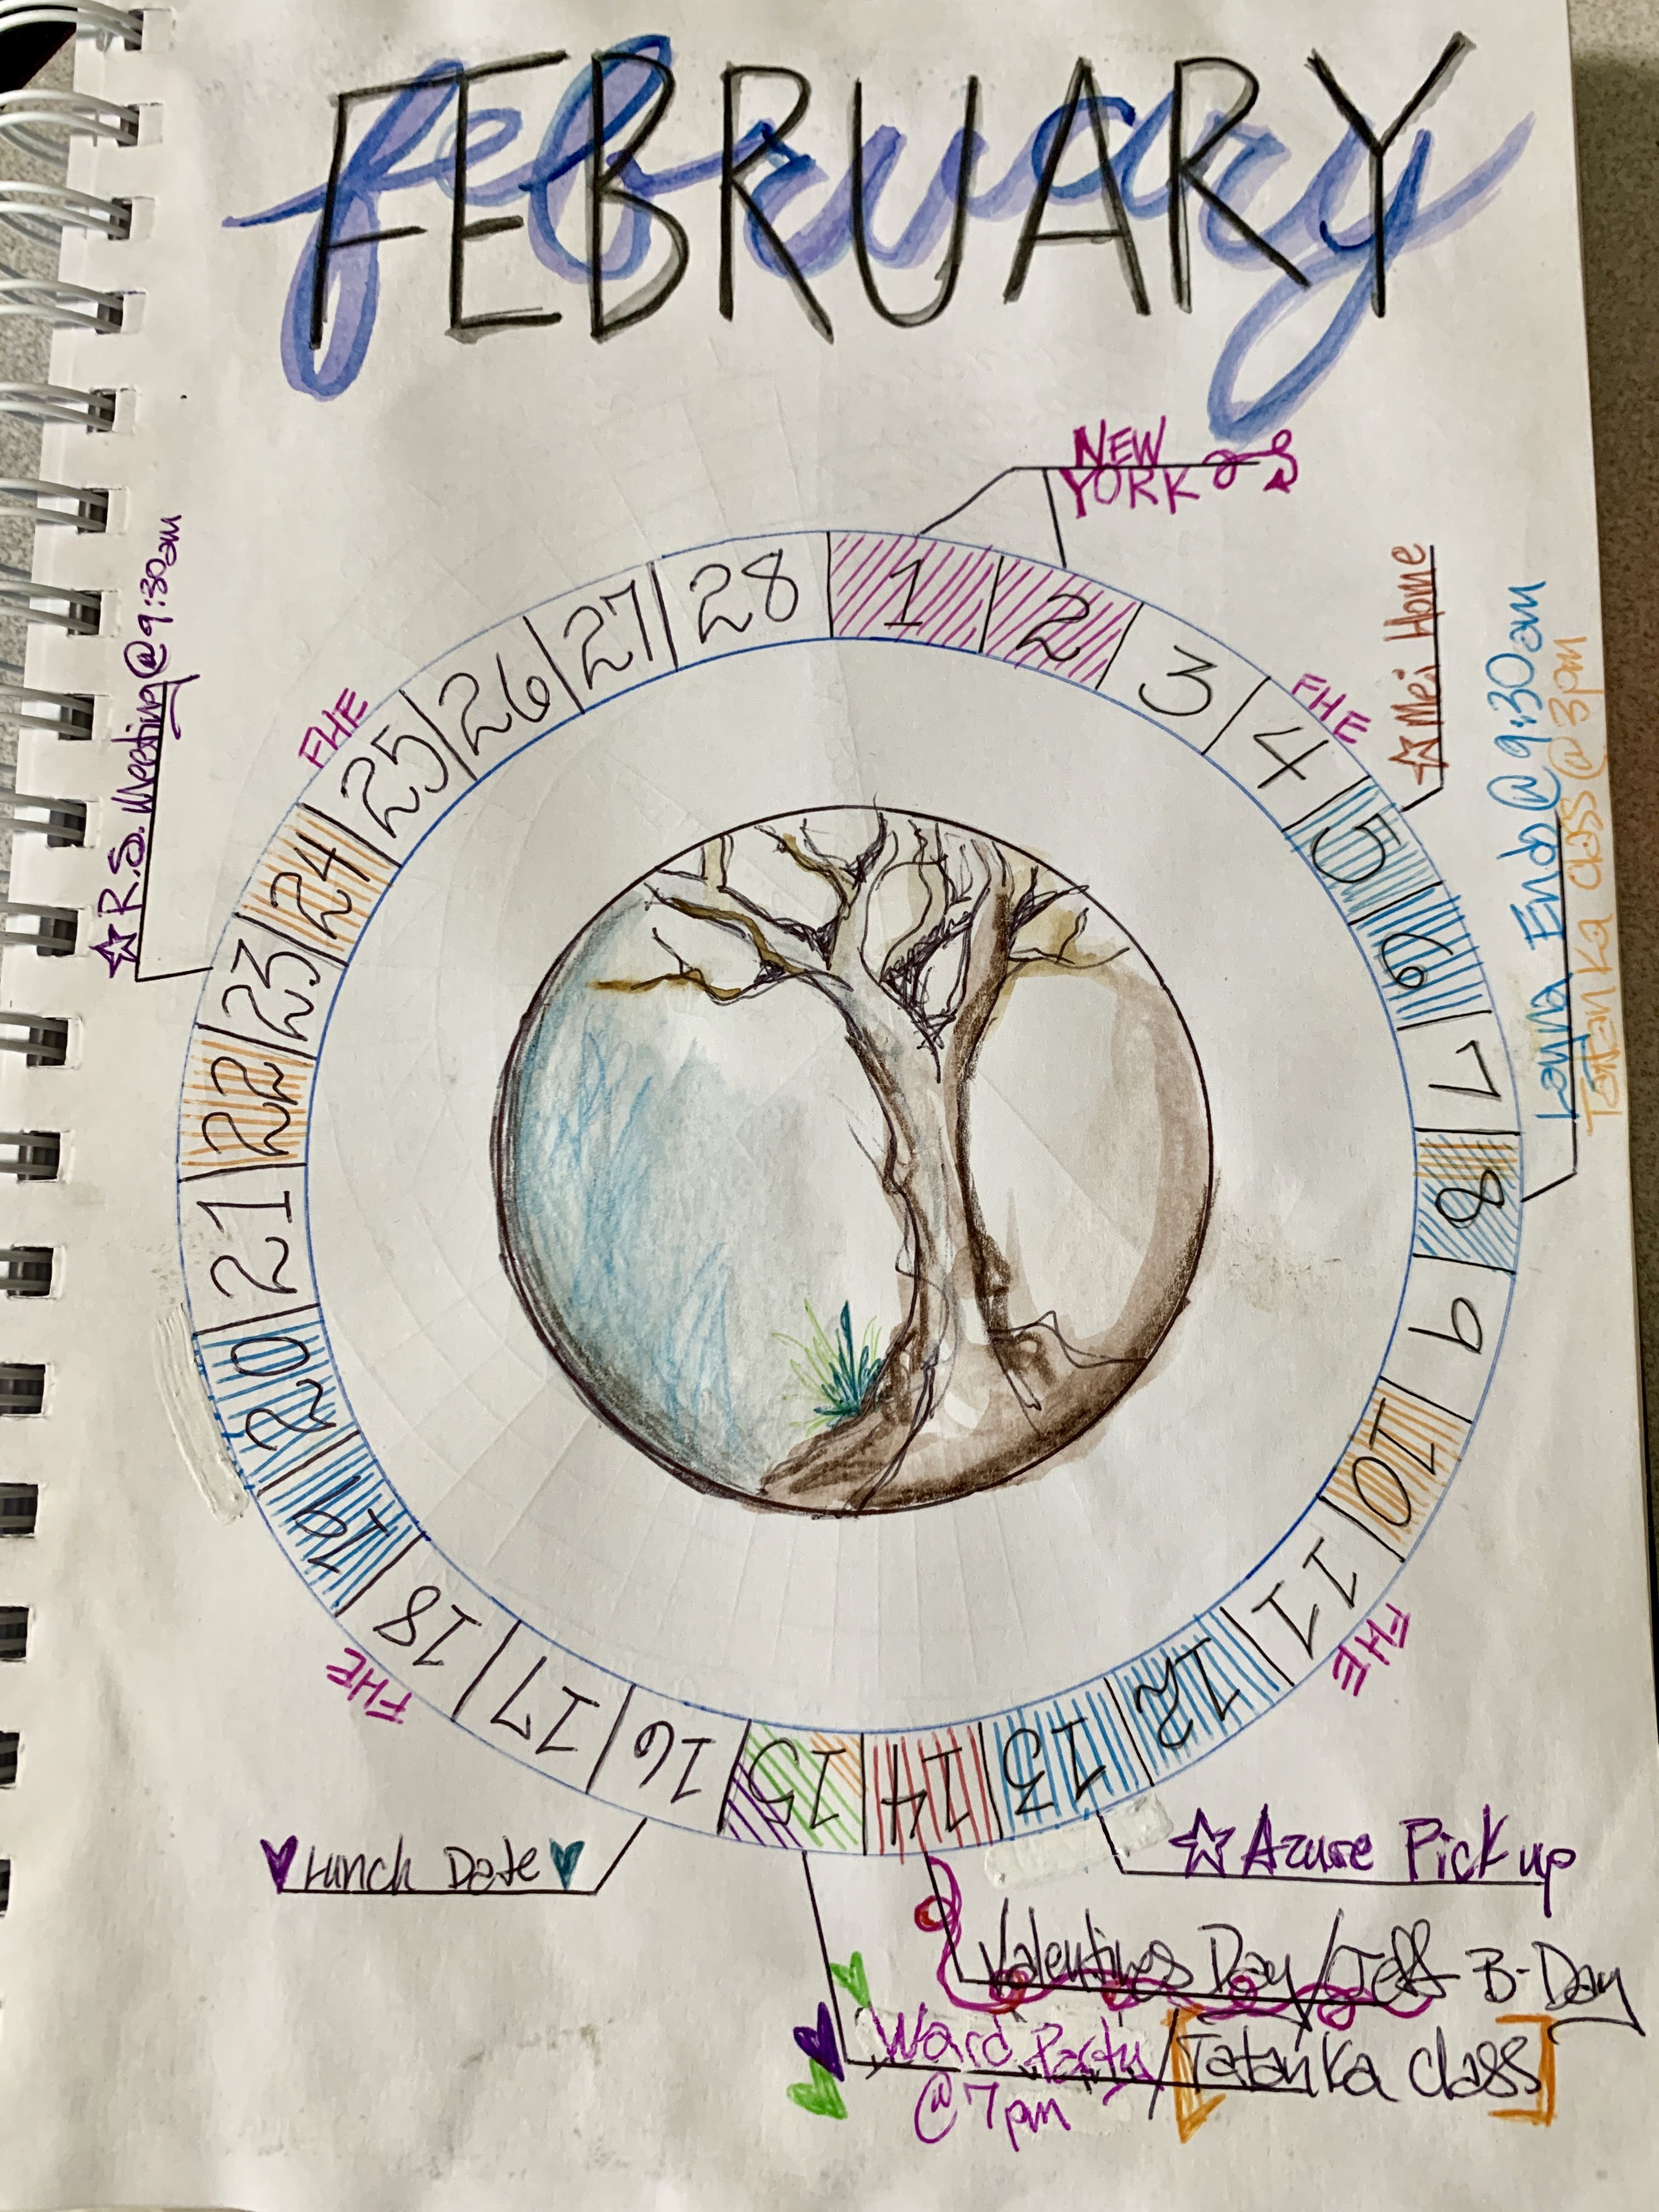 february
FEBRUARY
NEW
YORK
1
2
3
4
FHE
5
☆ Mei Home
6
7
8
Layna Endo @ 9:30am
Tatanka class @ 3pm
9
10
11
FHE
12
13
☆ Azure Pick up
14
Valentines Day / Jeff B-Day
15
Ward Party / Tatanka class
@ 7pm
16
♥ Lunch Date ♥
17
18
FHE
19
20
21
22
23
☆ R.S. Meeting @ 9:30am
24
25
FHE
26
27
28